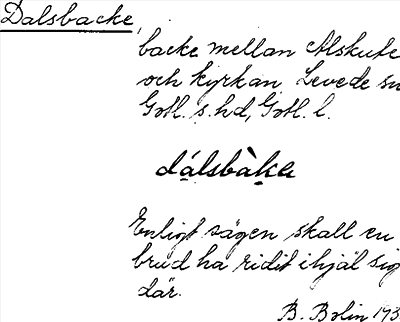 Dalsbacke,
backe mellan Alskute
och kyrkan, Levede sn
Gotl. s. hd, Gotl. l.
dálsbàka
Enligt sägen skall en
brud ha ridit ihjäl sig
där.
B. Bolin 193